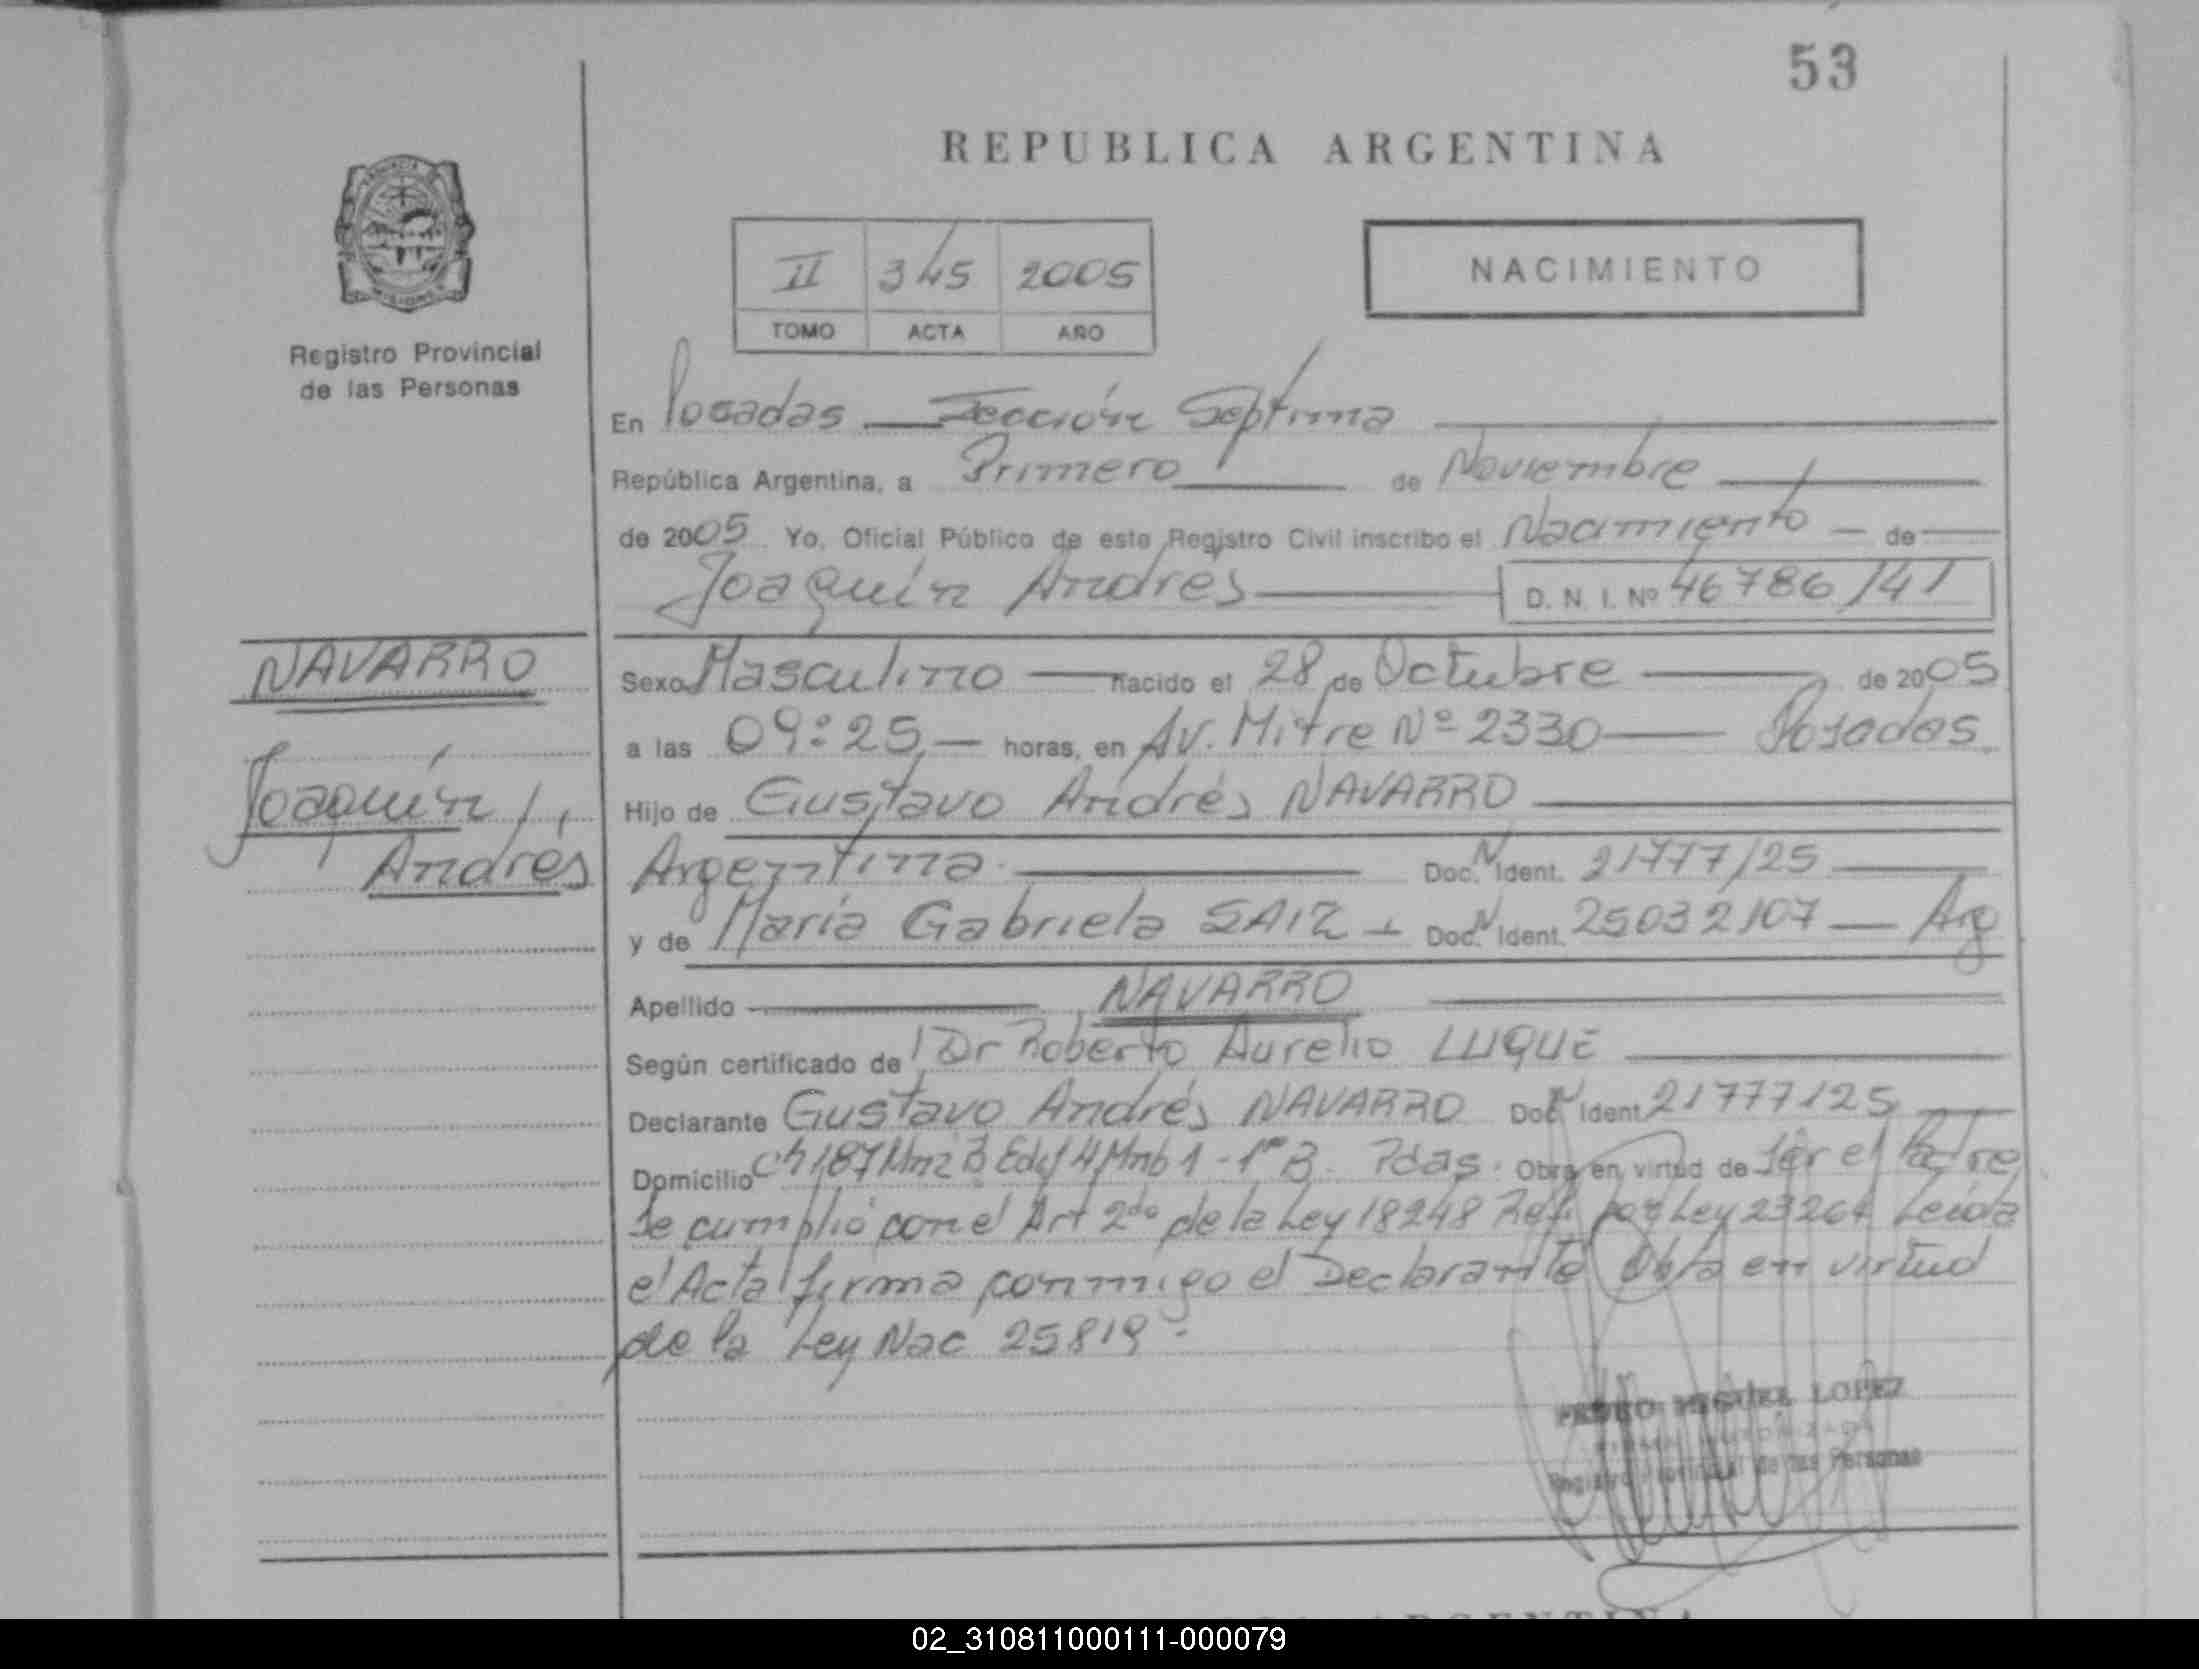 53
REPUBLICA ARGENTINA
II 345 2005
TOMO ACTA AÑO
NACIMIENTO
Registro Provincial
de las Personas
En Posadas — Sección Septima
República Argentina, a Primero de Noviembre
de 2005 Yo, Oficial Público de este Registro Civil inscribo el Nacimiento — de
Joaquín Andrés D. N. I. Nº 46786141
NAVARRO
Joaquín
Andrés
Sexo Masculino — nacido el 28 de Octubre de 2005
a las 09:25 — horas, en Av. Mitre Nº 2330 — Posadas
Hijo de Gustavo Andrés NAVARRO
Argentina. Doc. N Ident. 21777125
y de María Gabriela SAIZ — Doc. N Ident. 25032107 — Arg
Apellido NAVARRO
Según certificado de Dr Roberto Aurelio LUQUE
Declarante Gustavo Andrés NAVARRO Doc. N Ident. 21777125
Domicilio Ch 187 Mnz B Edif 4 Mnb 1 - 1º B. Pdas. Obra en virtud de Ser el Padre
Se cumplió con el Art 2do de la Ley 18248 Ref. por Ley 23264 Leida
el Acta firma conmigo el Declarante Obra en virtud
de la Ley Nac 25819.-
PEDRO MIGUEL LOPEZ
Registro Provincial de las Personas
ARGENTINA
02_310811000111-000079